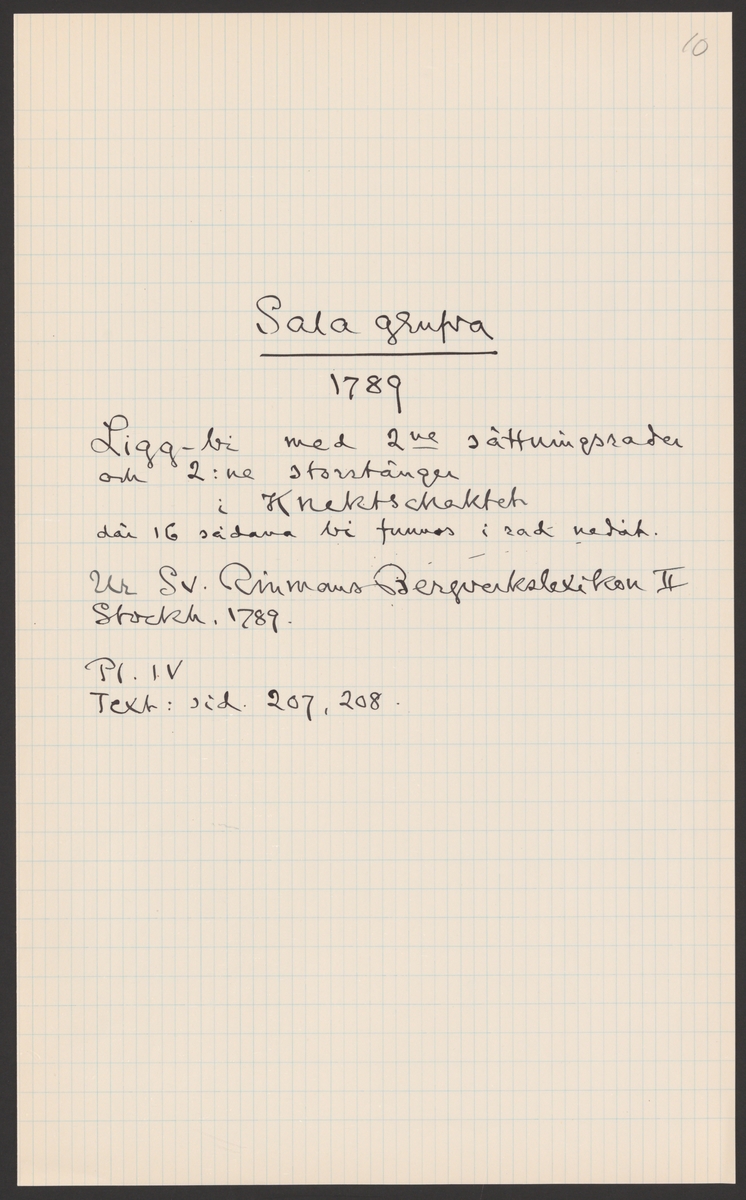 10
Sala grufva
1789
Ligg-bi med 2ne sättningsrader
och 2:ne storstänger
i Knektschaktet
där 16 sådana bi funnos i rad nedåt.
Ur Sv. Rinmans Bergverkslexikon II
Stockh. 1789.
Pl. IV
Text: sid. 207, 208.